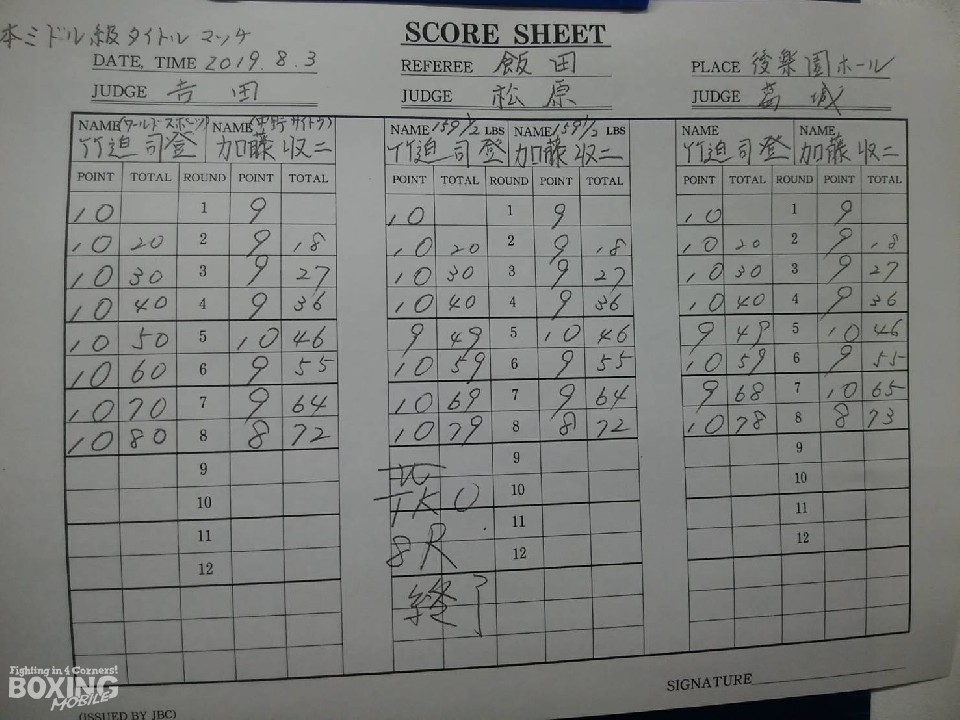 本ミドル級タイトルマッチ
SCORE SHEET
DATE, TIME 2019.8.3 REFEREE 飯田 PLACE 後楽園ホール
JUDGE 吉田 JUDGE 松原 JUDGE 葛城
NAME(ワールドスポーツ) NAME(中野サイトウ) NAME 159 1/2 LBS NAME 159 1/2 LBS NAME NAME
竹迫司登 加藤収二 竹迫司登 加藤収二 竹迫司登 加藤収二
POINT TOTAL ROUND POINT TOTAL POINT TOTAL ROUND POINT TOTAL POINT TOTAL ROUND POINT TOTAL
10 1 9 10 1 9 10 1 9
10 20 2 9 18 10 20 2 9 18 10 20 2 9 18
10 30 3 9 27 10 30 3 9 27 10 30 3 9 27
10 40 4 9 36 10 40 4 9 36 10 40 4 9 36
10 50 5 10 46 9 49 5 10 46 9 49 5 10 46
10 60 6 9 55 10 59 6 9 55 10 59 6 9 55
10 70 7 9 64 10 69 7 9 64 9 68 7 10 65
10 80 8 8 72 10 79 8 8 72 10 78 8 8 73
9 9 9
10 TKO 10 10
11 11 11
12 8R 12 12
終了
SIGNATURE
Fighting in 4 Corners!
BOXING
MOBILE
(ISSUED BY JBC)